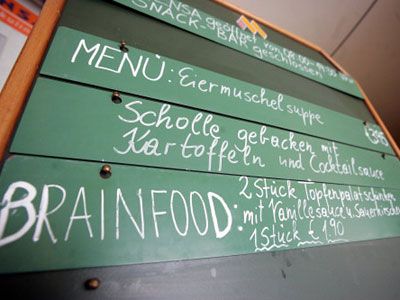 MENSA geöffnet von 08.00-
SNACK-BAR geschlossen
MENÜ: Eiermuschelsuppe
Scholle gebacken mit
Kartoffeln und Cocktailsauce
BRAINFOOD: 2 Stück Topfenpalatschinken
mit Vanyllesauce u. Sauerkirschen
1 Stück € 1,90